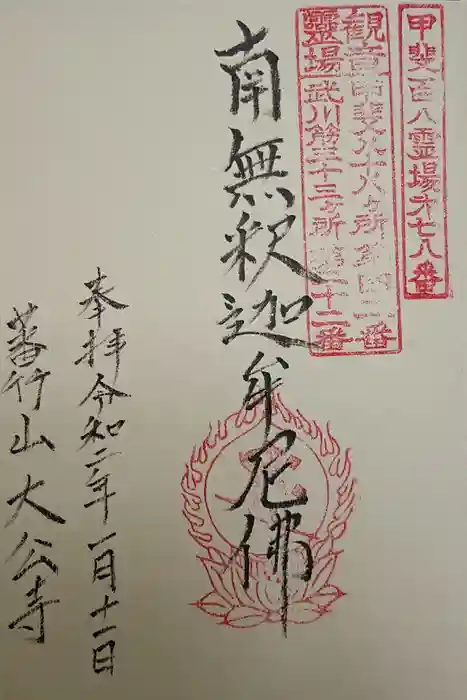 甲斐百八霊場才七八番
観音甲斐八十八ヶ所第四二番
霊場武川筋三十三ヶ所第二十二番
南無釈迦牟尼佛
奉拝令和二年一月十一日
蕃竹山大公寺